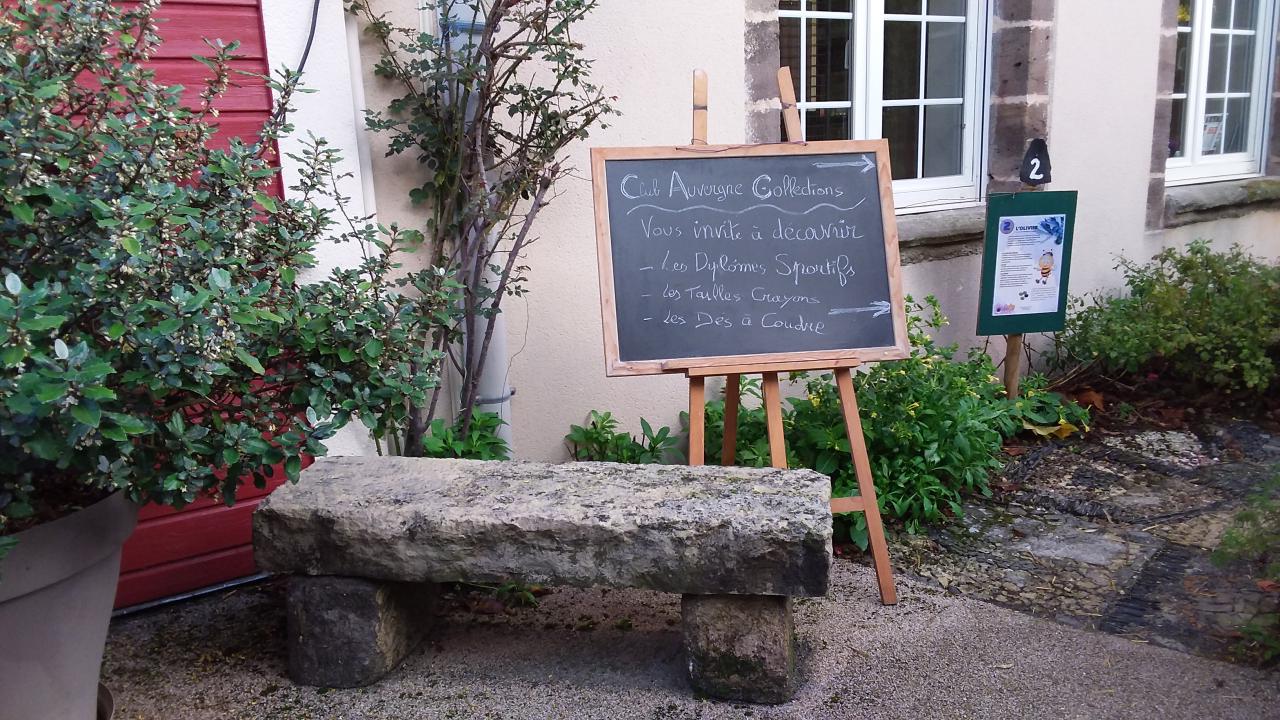 Club Auvergne Collections
Vous invite à découvrir
- Les Dyplômes Sportifs
- Les Tailles Crayons
- Les Dés à Coudre
2
2 L'OLIVIER